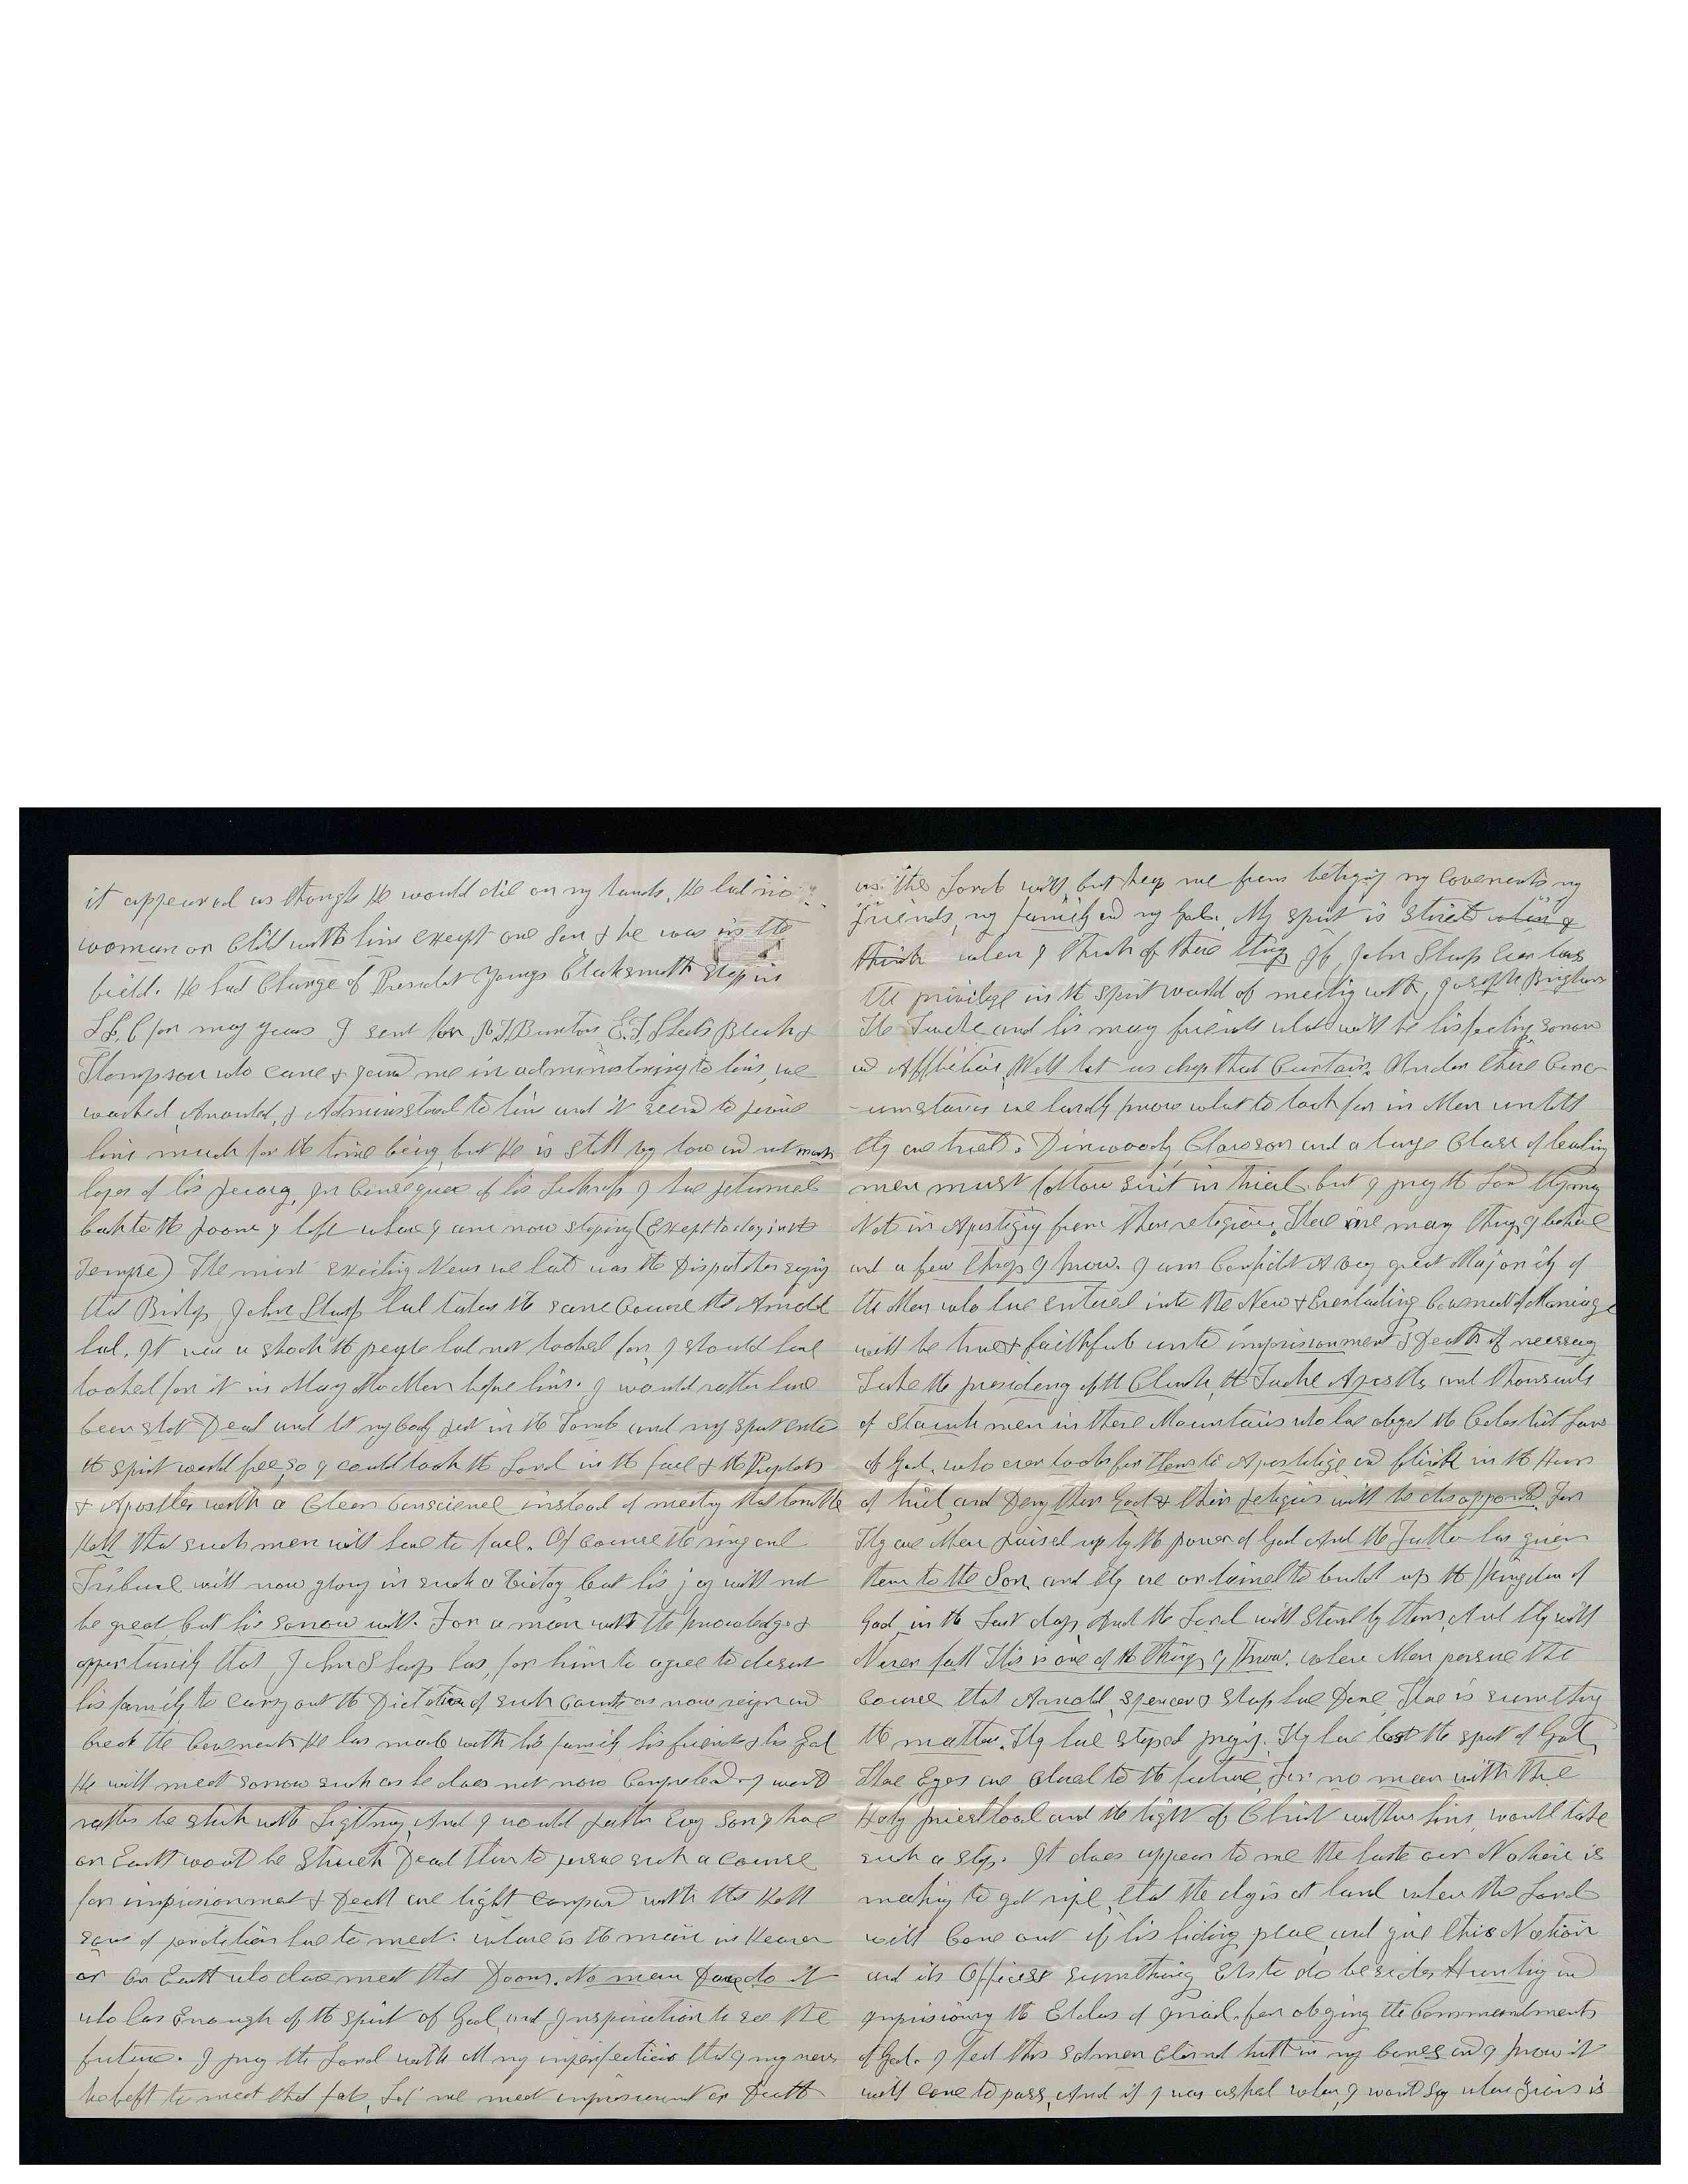 it appeared as though He would die on my hands, He had no
woman or Child with him except one Son & he was in the
field. He had Charge of President Youngs Blacksmith Shop in
S. L. C for many years I sent for R. T. Burton E. F. Sheets Bleak &
Thompson who came & joined me in administering to him, we
washed, Anointed, & Administered to him and it seemed to revive
him much for the time being but He is still very low and not much
hopes of his recovery, In Consequence of his Sickness I have returned
back to the Room I left where I am now stoping (Except to day in the
Temple) The most exciting News we had was the Dispatches saying
that Bishop John Sharp had taken the same Course that Arnold
had. It was a shock the people had not looked for, I should have
looked for it in Many other Men before him. I would rather have
been shot Dead and let my body rest in the Tomb and my spirit enter
the spirit world free, so I could look the Lord in the face & the Prophets
& Apostles with a Clear Conscience instead of meeting that terrible
Hell that such men will have to face. Of course the ring and
Tribune will now glory in such a Victory but his joy will not
be great but his sorrow will. For a man with the knowledge &
oppertunity that John Sharp has, for him to agree to desert
his family to carry out the Dictation of such Courts as now reign and
break the Covenants He has made with his family his friends & his God
He will meet sorrow such as he does not now Comprehend. I would
rather be struck with Lightning, And I would rather Evry Son I have
on Earth would be Struck Dead than to persue such a course
for imprisionment & Death are light compared with the Hell
sons of perdition have to meet. where is the man in Heaven
or on Earth who dare meet that Doom. No man Dare do it
who has Enough of the spirit of God and Inspiration to see the
future. I pray the Lord with all my imperfections that I may never
be left to meet that fate, Let me meet imprisonment or Death
as the Lord will, but keep me from betraying my Covenants my
friends, my family and my God. My spirit is stired when I
think when I think of these things If John Sharp Ever has
the privilege in the spirit world of meeting with, Joseph Brigham
The Twelve and his many friends what will be his feelings sorrow
and Affliction, Well let us drop that Curtain. Under these Circ-
-umstances we hardly know what to look for in Men untill
they are tried. Dinwoody, Clawson and a large Class of leading
men must follow suit in trial. but I pray the Lord they may
Not in Apostizing from their religion. There are many things I believe
and a few things I know. I am Confidet A very great Majority of
the Men who have entered into the New & Everlasting Covenant of Marriage
will be true & faithful unto imprisionment & Death if necessary
Take the presidency of the Church, the Twelve Apostles and thousands
of Staunch men in these Mountains who have obeyed the Celestial Law
of God, who ever looks for them to Apostitize and flinch in the Hour
of trial, and Deny their God & their religion will be disappointed For
They are Men raised up by the power of God And the Father has given
them to the Son, and they are ordained to build up the Kingdom of
God in the Last days, And the Lord will Stand by them, And they will
Never fall This is one of the things I Know. where Men persue the
course that Arnold, Spencer & Sharp have Done, Thare is sumthing
the matter. They have stoped praying. They have lost the spirit of God,
Thare Eyes are closed to the future, For no man with the
Holy priesthood and the light of Christ within him, would take
such a step. It does appear to me the haste our Nation is
making to get ripe, that the day is at hand when the Lord
will Come out of his hiding place, and give this Nation
and its Officers sumthing Els to do besides Hunting and
imprisioning the Elders of Israel. for obeying the Commandments
of God. I feel this solmn Eternal truth in my bones and I know it
will come to pass, And if I was asked when, I would say when Zion is